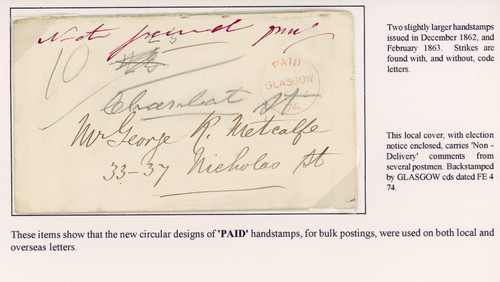 Not found
10
PAID
GLASGOW
Charlot St
Mr George R. Metcalfe
33-37 Nicholas St
Two slightly larger handstamps
issued in December 1862, and
February 1863. Strikes are
found with, and without, code
letters.
This local cover, with election
notice enclosed, carries 'Non -
Delivery' comments from
several postmen. Backstamped
by GLASGOW cds dated FE 4
74.
These items show that the new circular designs of 'PAID' handstamps, for bulk postings, were used on both local and
overseas letters.